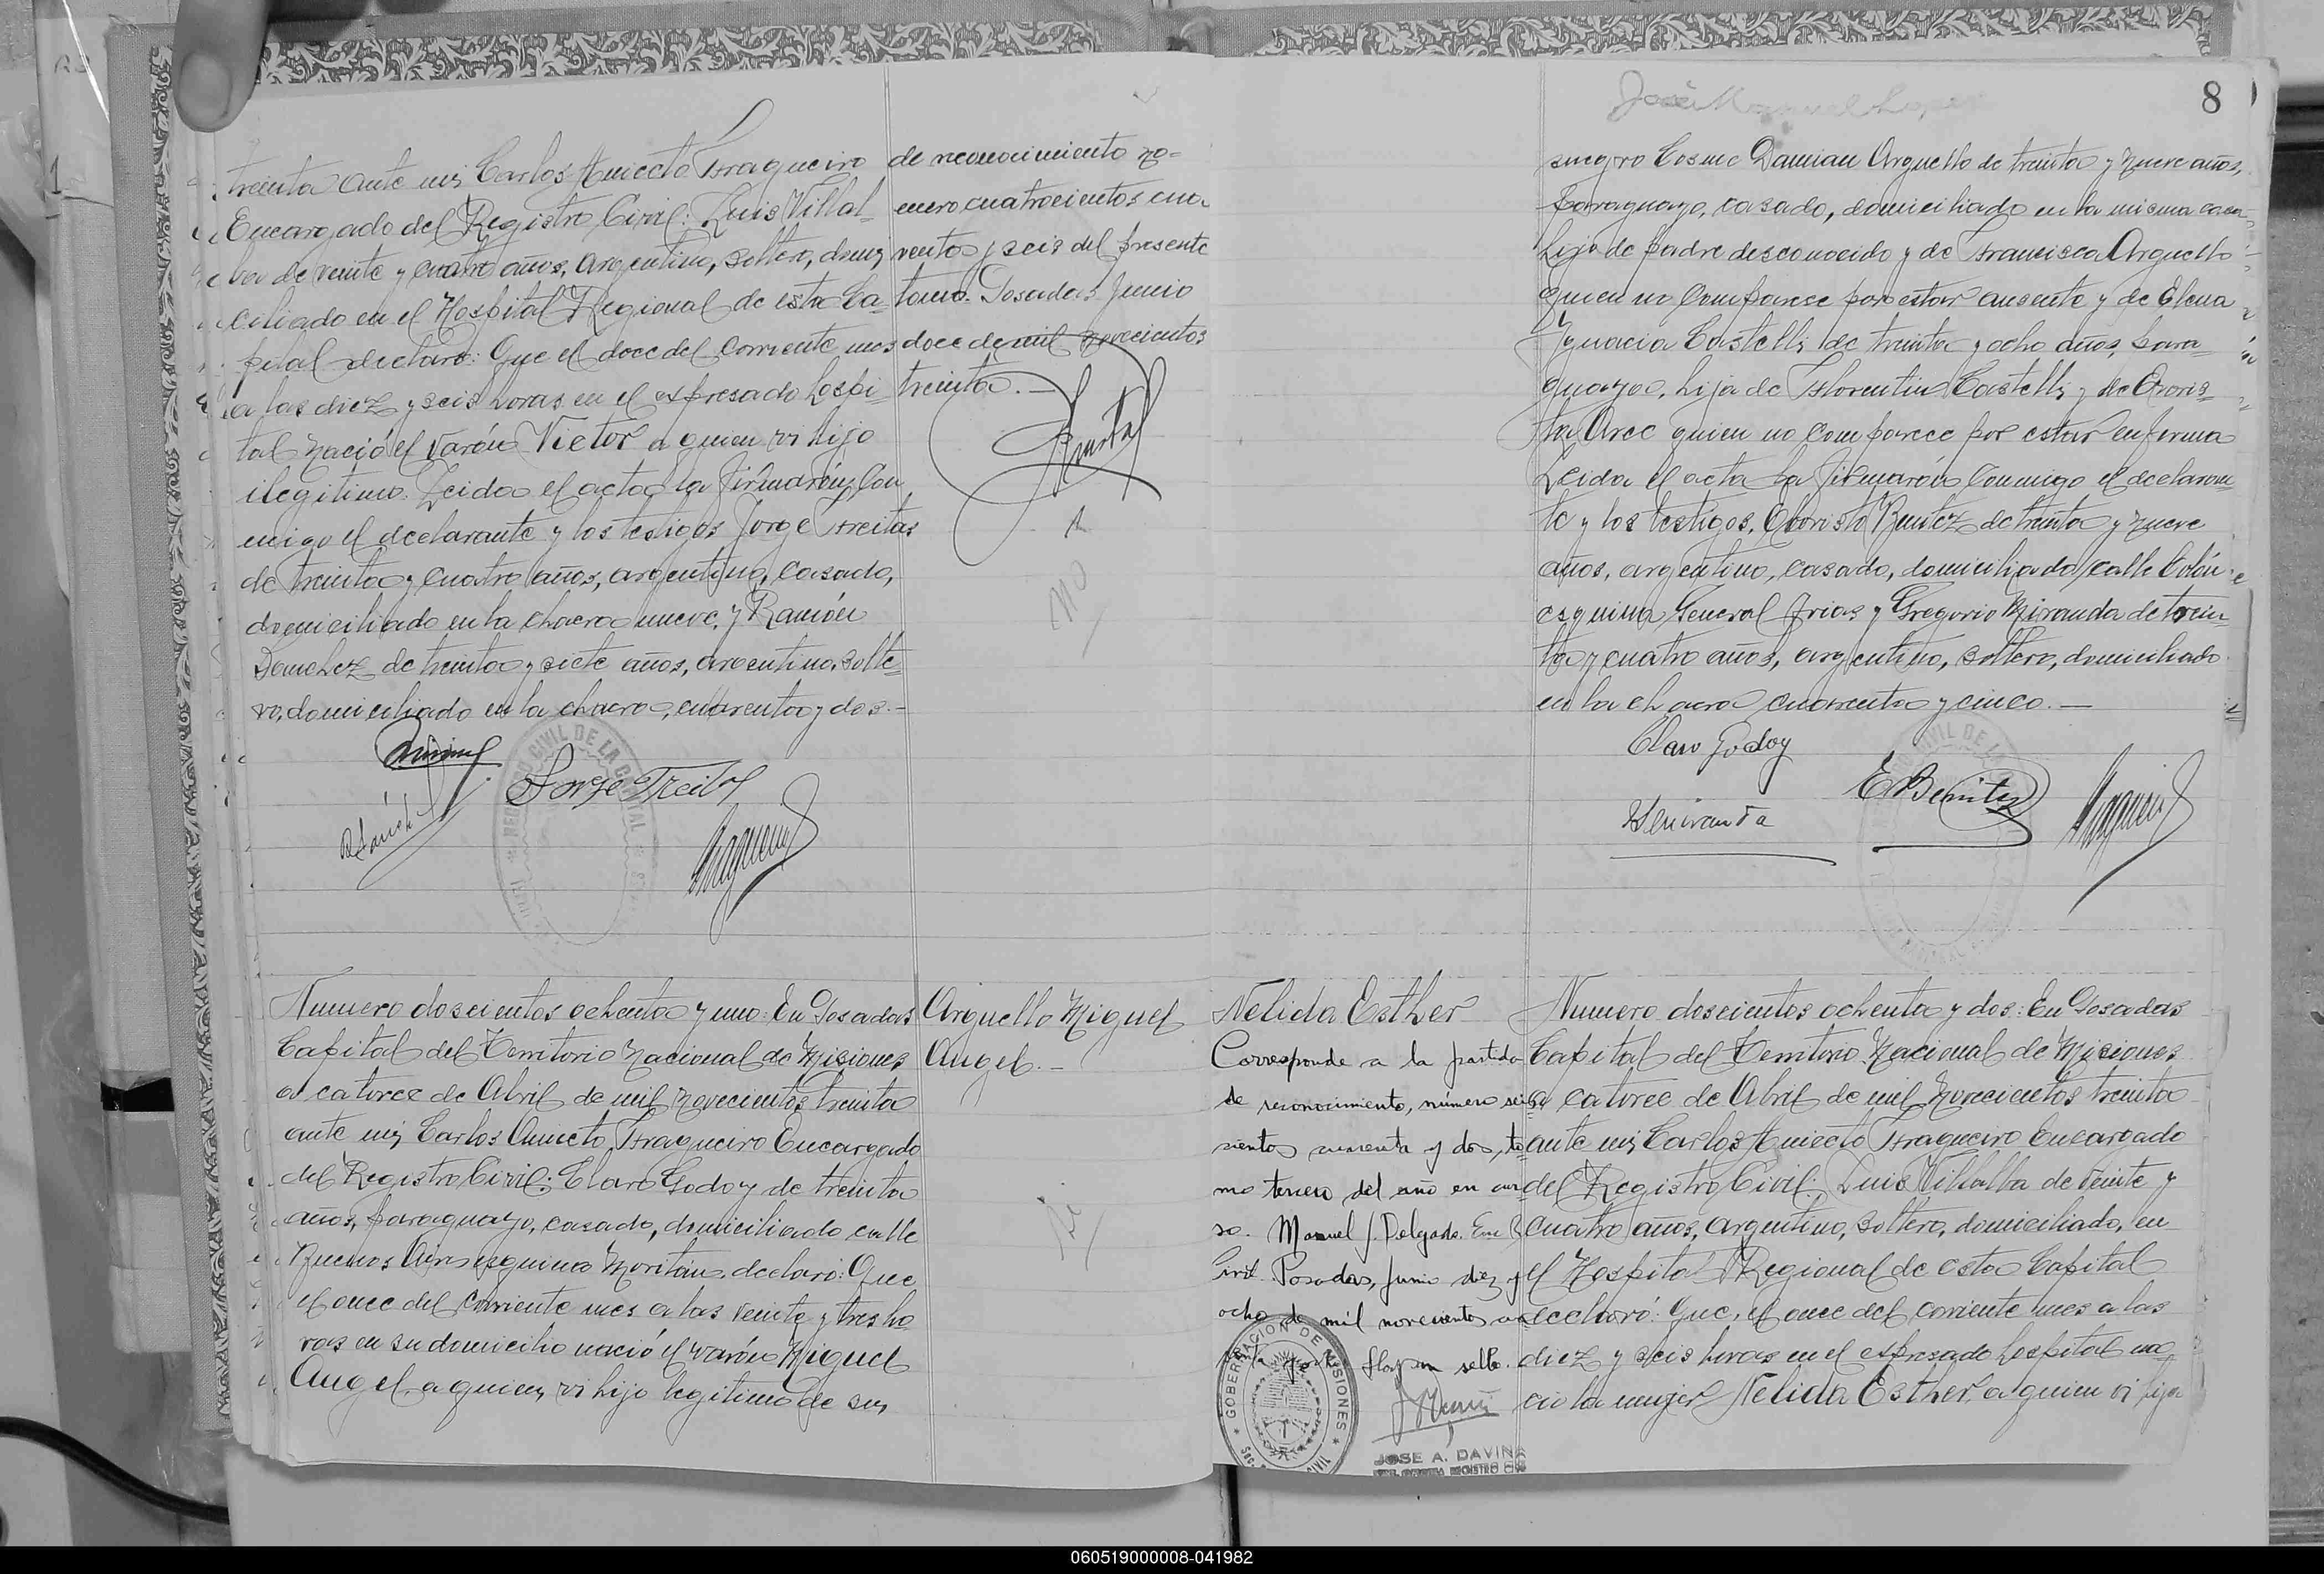 treinta ante mi Carlos Aniceto Fragueiro
Encargado del Registro Civil: Luis Villal-
ba de veinte y cuatro años, argentino, soltero, domi
ciliado en el Hospital Regional de esta Ca-
pital declaro: Que el doce del corriente mes
a las diez y seis horas en el expresado Hospi-
tal nació el varón Victor a quien vi hijo
ilegitimo. Leida el acta la firmarón con
migo el declarante y los testigos Jorge Freitas
de treinta y cuatro años, argentino, casado,
domiciliado en la chacra nueve, y Ramón
Sanchez de treinta y siete años, argentino, solte-
ro, domiciliado en la chacra cuarenta y dos.-
Jorge Freitas
de reconocimiento nú-
mero cuatrocientos cua
renta y seis del presente
tomo. Posadas Junio
doce de mil novecientos
treinta.-
Numero doscientos ochenta y uno: En Posadas
Capital del Territorio Nacional de Misiones
a catorce de Abril de mil novecientos treinta
ante mi Carlos Aniceto Fragueiro Encargado
del Registro Civil: Claro Godoy de treinta
años, paraguayo, casado, domiciliado calle
Buenos Aires esquina declaró: Que
el once del corriente mes a las veinte y tres ho
ras en su domicilio nació el varón Miguel
Angel, a quien vi hijo legitimo de su
Arguello Miguel
Angel.-
8
suegro Cosme Damian Arguello de treinta y nueve años,
paraguayo, casado, domiciliado en la misma casa
hijo de padre desconocido y de Francisca Arguello
quien no comparece por estar ausente y de Elena
Ygnacia Castelli de treinta y ocho años, para-
guaya, hija de Florentin Castelli y de Evaris-
ta Arce quien no comparece por estar enferma
Leida el acta la firmarón conmigo el declaran
te y los testigos, Evaristo Benitez de treinta y nueve
años, argentino, casado, domiciliado calle Colón
esquina General Arias y Gregorio Miranda de trein
ta y cuatro años, argentino, soltero, domiciliado
en la chacra cuarenta y cinco.-
Claro Godoy
E Benitez
Nelida Esther
Corresponde a la partida
de reconocimiento, número seis
cientos cuarenta y dos, to
mo tercero del año en cur
so. Manuel J. Delgado. Enc. R.
Civil. Posadas, Junio diez y
ocho de mil novecientos
GOBERNACION DE MISIONES
JOSE A. DAVIÑA
Numero doscientos ochenta y dos: En Posadas
Capital del Territorio Nacional de Misiones
a catorce de Abril de mil novecientos treinta
ante mi Carlos Aniceto Fragueiro Encargado
del Registro Civil: Luis Villalba de veinte y
cuatro años, argentino, soltero, domiciliado, en
el Hospital Regional de esta Capital
declaró: Que, el once del corriente mes a las
diez y seis horas en el expresado hospital na
ció la mujer Nelida Esther, a quien vi hija
060519000008-041982